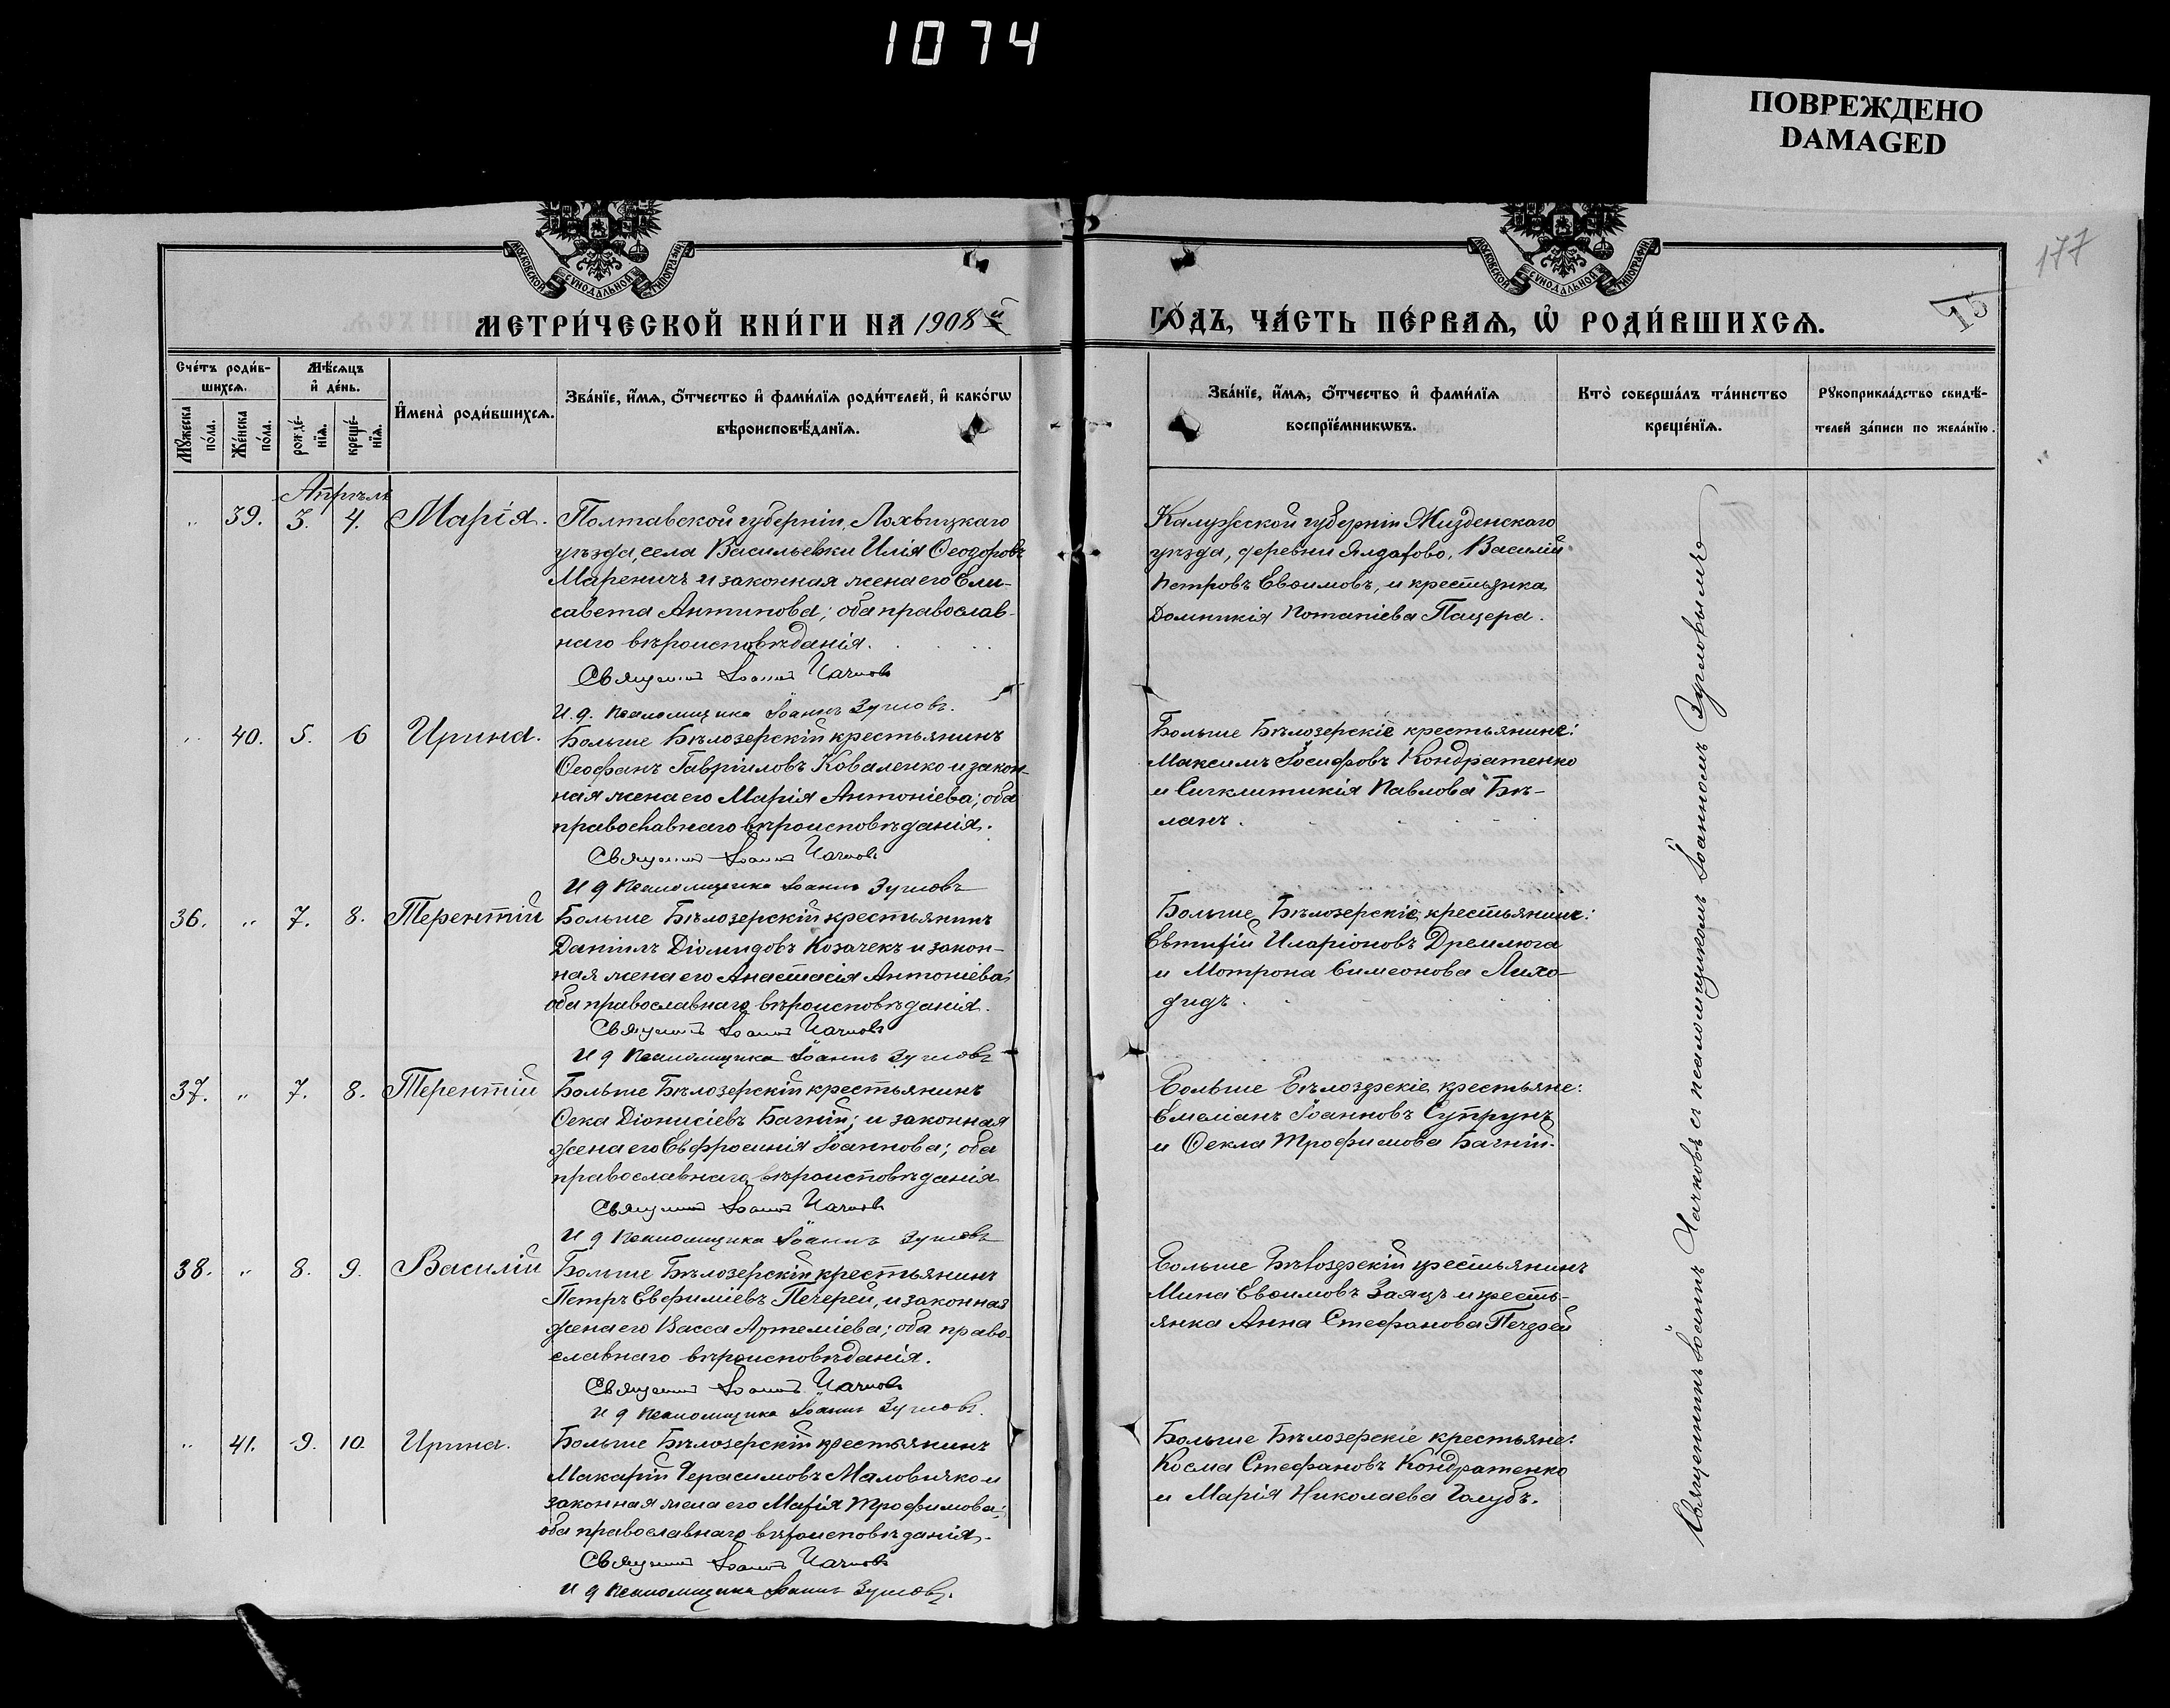 1074
ПОВРЕЖДЕНО
DAMAGED
177
15
МОСКОВСКОЙ СѴНОДАЛЬНОЙ ТИПОГРАФІИ
МОСКОВСКОЙ СѴНОДАЛЬНОЙ ТИПОГРАФІИ
МЕТРИ́ЧЕСКОЙ КНИ́ГИ НА 1908й
ГО́ДЪ, ЧА́СТЬ ПЕ́РВАѦ, Ѡ РОДИ́ВШИХСѦ.
Сче́тъ роди́в-
шихсѧ.
Мꙋжеска по́ла.
Же́нска по́ла.
Мѣ́сѧцъ
и҆ де́нь.
рожде́-
нїѧ.
креще́-
нїѧ.
И҆мена̀ роди́вшихсѧ.
Зва́нїе, и҆́мѧ, ѻ҆́тчество и҆ фами́лїѧ роди́телей, и҆ како́гѡ
вѣроисповѣ́данїѧ.
Зва́нїе, и҆́мѧ, ѻ҆́тчество и҆ фами́лїѧ
воспрїе́мникѡвъ.
Кто̀ соверша́лъ та́инство
креще́нїѧ.
Рꙋкоприкла́дство свидѣ́-
телей за́писи по жела́нїю.
Апрѣль
„ 39. 3. 4. Марія.
Полтавской губерніи, Лохвицкаго
уѣзда, села Васильевки Илія Ѳеодоровъ
Мареничъ и законная жена его Ели-
савета Антипова; оба православ-
наго вѣроисповѣданія.
Священникъ Іоаннъ
И. д. псаломщика Іоаннъ Зусловъ.
Калужской губерніи Жизденскаго
уѣзда, деревни Ялдафово, Василій
Петровъ Евѳимовъ, и крестьянка
Домникія Потапіева Пацера.
„ 40. 5. 6 Ирина.
Больше Бѣлозерскій крестьянинъ
Ѳеофанъ Гавріиловъ Коваленко и закон-
ная жена его Марія Антоніева; оба
православнаго вѣроисповѣданія.
Священникъ Іоаннъ
И д псаломщика Іоаннъ Зусловъ
Больше Бѣлозерскіе крестьянине:
Максимъ Іосифовъ Кондратенко
и Сигклитикія Павлова Бѣ-
ланъ.
36. „ 7. 8. Терентій
Больше Бѣлозерскій крестьянинъ
Даніилъ Діомидовъ Козачекъ и закон-
ная жена его Анастасія Антоніева;
оба православнаго вѣроисповѣданія.
Священникъ Іоаннъ
И д псаломщика Іоаннъ Зусловъ
Больше Бѣлозерскіе крестьянине:
Евтифій Иларіоновъ Дремлюга
и Мотрона Симеонова Лихо-
дидъ.
37. „ 7. 8. Терентій
Больше Бѣлозерскій крестьянинъ
Ѳока Діонисіевъ Багній; и законная
жена его Евфросинія Іоаннова; оба
православнаго вѣроисповѣданія
Священникъ Іоаннъ
И д псаломщика Іоаннъ Зусловъ
Больше Бѣлозерскіе крестьяне:
Емеліанъ Іоанновъ Супрунъ
и Ѳекла Трофимова Багній.
38. „ 8. 9. Василій
Больше Бѣлозерскій крестьянинъ
Петръ Евфиміевъ Печерей, и законная
жена его Васса Артеміева; оба право-
славнаго вѣроисповѣданія.
Священникъ Іоаннъ
И д псаломщика Іоаннъ Зусловъ.
Больше Бѣлозерскій крестьянинъ
Мина Евѳимовъ Заяцъ и кресть-
янка Анна Стефанова Печерей
„ 41. 9. 10. Ирина.
Больше Бѣлозерскій крестьянинъ
Макарій Герасимовъ Маловичко и
законная жена его Марія Трофимова;
оба православнаго вѣроисповѣданія.
Священникъ Іоаннъ
И д псаломщика Іоаннъ Зусловъ.
Больше Бѣлозерскіе крестьяне:
Косма Стефановъ Кондратенко
и Марія Николаева Голубъ.
Священникъ Іоаннъ съ псаломщикомъ Іоанномъ Зусловымъ